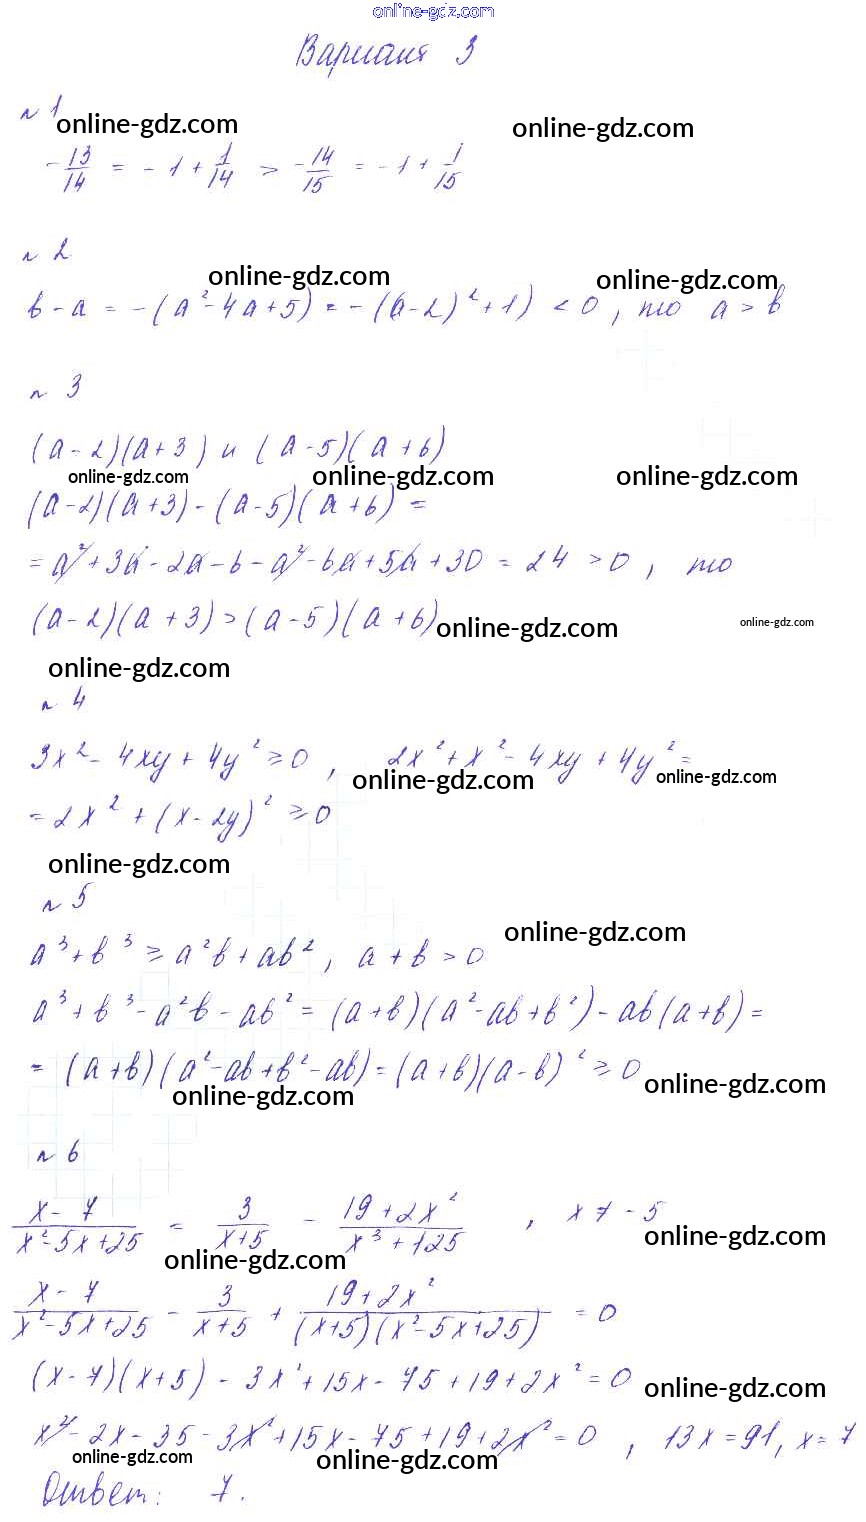 online-gdz.com
Вариант 3
№ 1
online-gdz.com online-gdz.com
-13/14 = -1 + 1/14 > -14/15 = -1 + 1/15
№ 2
online-gdz.com online-gdz.com
b - a = -(a² - 4a + 5) = -(a - 2)² + 1) < 0, то a > b
№ 3
(a - 2)(a + 3) и (a - 5)(a + 6)
online-gdz.com online-gdz.com online-gdz.com
(a - 2)(a + 3) - (a - 5)(a + 6) =
= a² + 3a - 2a - 6 - a² - 6a + 5a + 30 = 24 > 0, то
(a - 2)(a + 3) > (a - 5)(a + 6)
online-gdz.com online-gdz.com
online-gdz.com
№ 4
3x² - 4xy + 4y² ≥ 0, 2x² + x² - 4xy + 4y² =
online-gdz.com online-gdz.com
= 2x² + (x - 2y)² ≥ 0
online-gdz.com
№ 5
online-gdz.com
a³ + b³ ≥ a²b + ab², a + b > 0
a³ + b³ - a²b - ab² = (a + b)(a² - ab + b²) - ab(a + b) =
= (a + b)(a² - ab + b² - ab) = (a + b)(a - b)² ≥ 0
online-gdz.com online-gdz.com
№ 6
(x - 7)/(x² - 5x + 25) = 3/(x + 5) - (19 + 2x²)/(x³ + 125), x ≠ -5
online-gdz.com online-gdz.com
(x - 7)/(x² - 5x + 25) - 3/(x + 5) + (19 + 2x²)/((x + 5)(x² - 5x + 25)) = 0
(x - 7)(x + 5) - 3x² + 15x - 75 + 19 + 2x² = 0
online-gdz.com
x² - 2x - 35 - 3x² + 15x - 75 + 19 + 2x² = 0, 13x = 91, x = 7
online-gdz.com online-gdz.com
Ответ: 7.